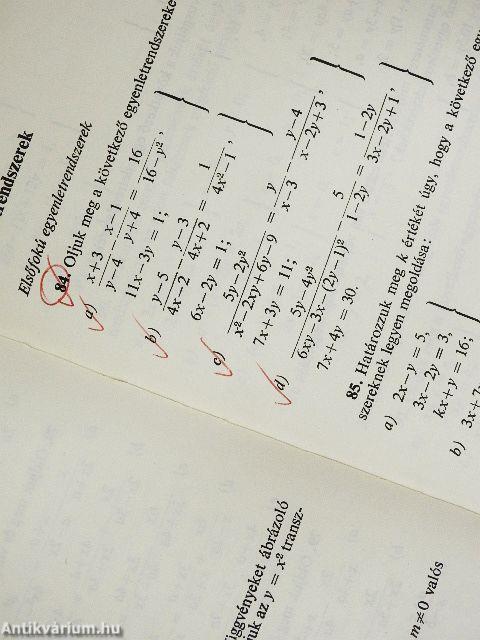 Elsőfokú egyenletrendszerek
84. Oljuk meg a következő egyenletrendszereke
a) \frac{x+3}{y-4} - \frac{x-1}{y+4} = \frac{16}{16-y²},
11x-3y = 1;
b) \frac{y-5}{4x-2} - \frac{y-3}{4x+2} = \frac{1}{4x²-1},
6x-2y = 1;
c) \frac{5y-2y²}{x²-2xy+6y-9} = \frac{y}{x-3} - \frac{y-4}{x-2y+3},
7x+3y = 11;
d) \frac{5y-4y²}{6xy-3x-(2y-1)²} - \frac{5}{1-2y} = \frac{1-2y}{3x-2y+1},
7x+4y = 30.
85. Határozzuk meg k értékét úgy, hogy a következő
szereknek legyen megoldása:
a) 2x-y = 5,
3x-2y = 3,
kx+y = 16;
b)
üggvényeket ábrázoló
uk az y = x² transz-
m≠0 valós
Antikvárium.hu